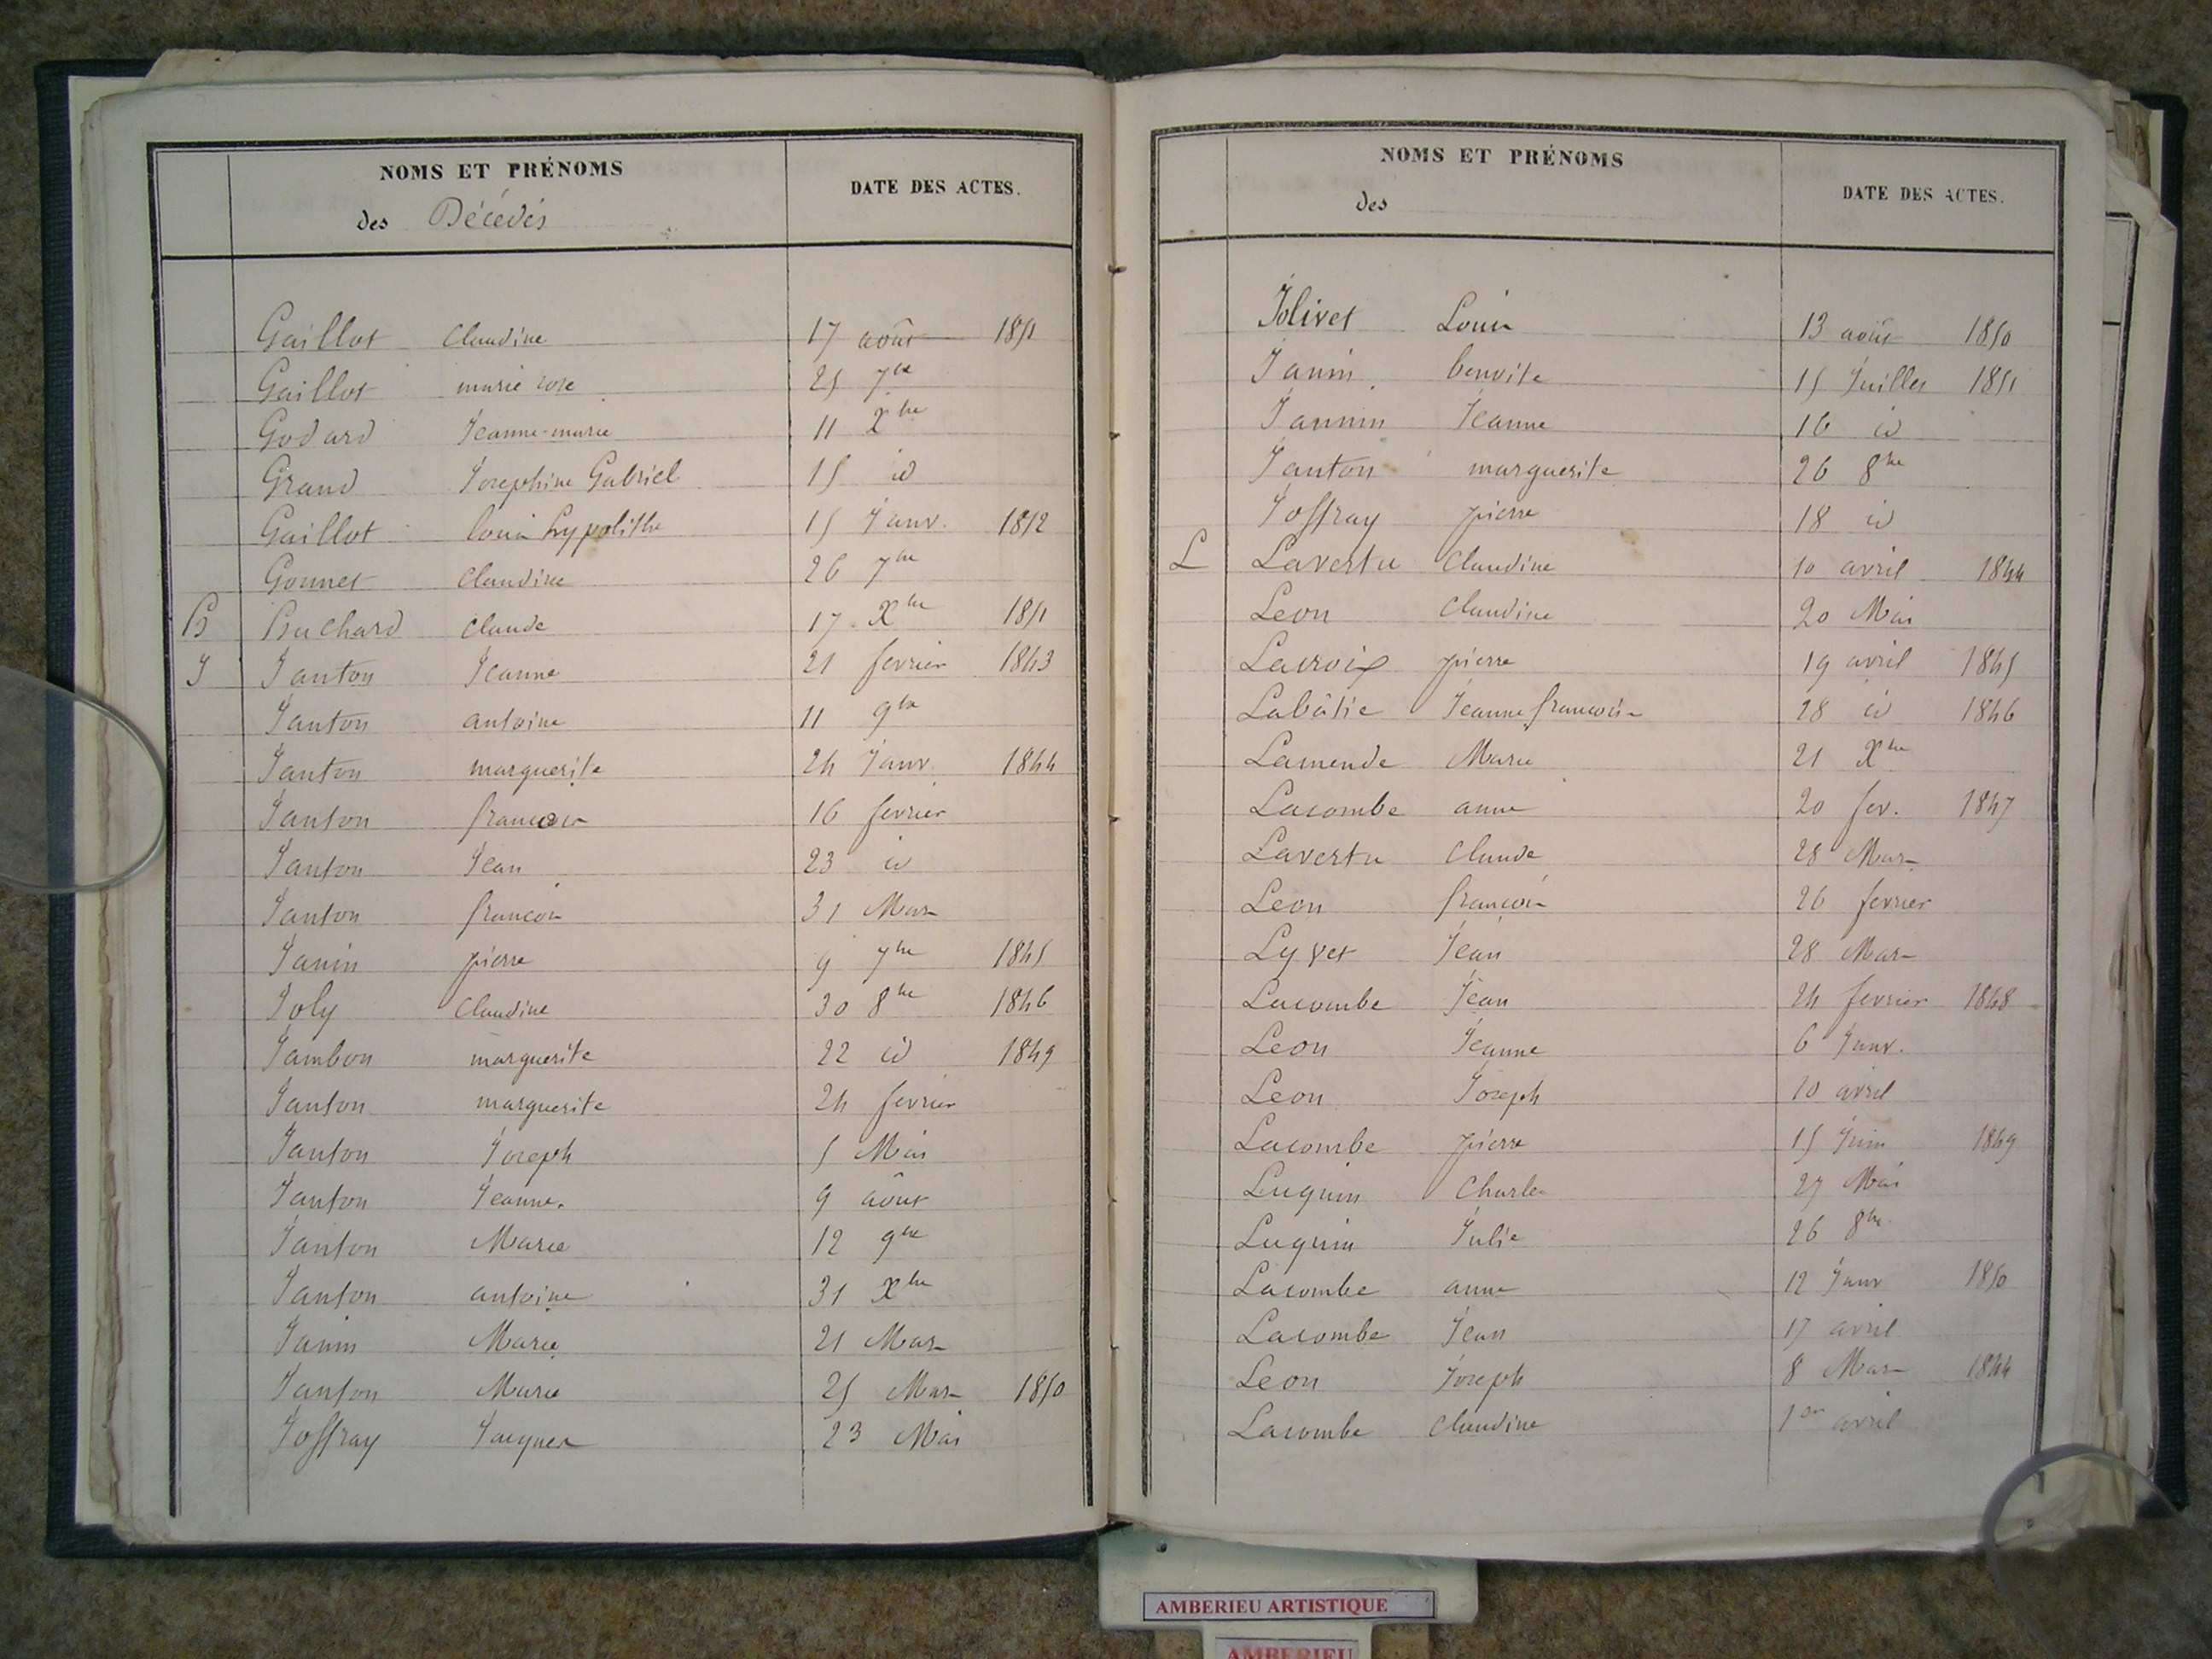 NOMS ET PRÉNOMS
des Décédés
DATE DES ACTES.
Gaillot Claudine 17 août 1851
Gaillot marie rose 25 7bre
Godard Jeanne-marie 11 Xbre
Grand Josephine Gabriel 15 id
Gaillot louis hypolithe 15 Janv. 1852
Gonnet Claudine 26 7bre
B Buchard Claude 17 Xbre 1851
J Janton Jeanne 21 fevrier 1843
Janton antoine 11 9bre
Janton marguerite 24 Janv. 1844
Janton francois 16 fevrier
Janton Jean 23 id
Janton francois 31 Mars
Janin pierre 9 7bre 1845
Joly Claudine 30 8bre 1846
Jambon marguerite 22 id 1849
Janton marguerite 24 fevrier
Janton Joseph 5 Mai
Janton Jeanne. 9 août
Janton Marie 12 9bre
Janton antoine 31 Xbre
Janin Marie 21 Mars
Janton Marie 25 Mars 1850
Joffray Jacques 23 Mai
NOMS ET PRÉNOMS
des
DATE DES ACTES.
Jolivet Louis 13 août 1850
Janin benoite 15 Juillet 1851
Jannin Jeanne 16 id
Janton marguerite 26 8bre
Joffray pierre 18 id
L Lavertu Claudine 10 avril 1844
Leon Claudine 20 Mai
Lacroix pierre 19 avril 1845
Labâtie Jeanne francoise 28 id 1846
Lamende Marie 21 Xbre
Lacombe anne 20 fev. 1847
Lavertu Claude 28 Mars
Leon francois 26 fevrier
Lyvet Jean 28 Mars
Lacombe Jean 24 fevrier 1848
Leon Jeanne 6 Janv.
Leon Joseph 10 avril
Lacombe pierre 15 Juin 1849
Luquin Charles 27 Mai
Luquin Julie 26 8bre
Lacombe anne 12 Janv 1850
Lacombe Jean 17 avril
Leon Joseph 8 Mars 1844
Lacombe Claudine 1er avril
AMBERIEU ARTISTIQUE
AMBERIEU